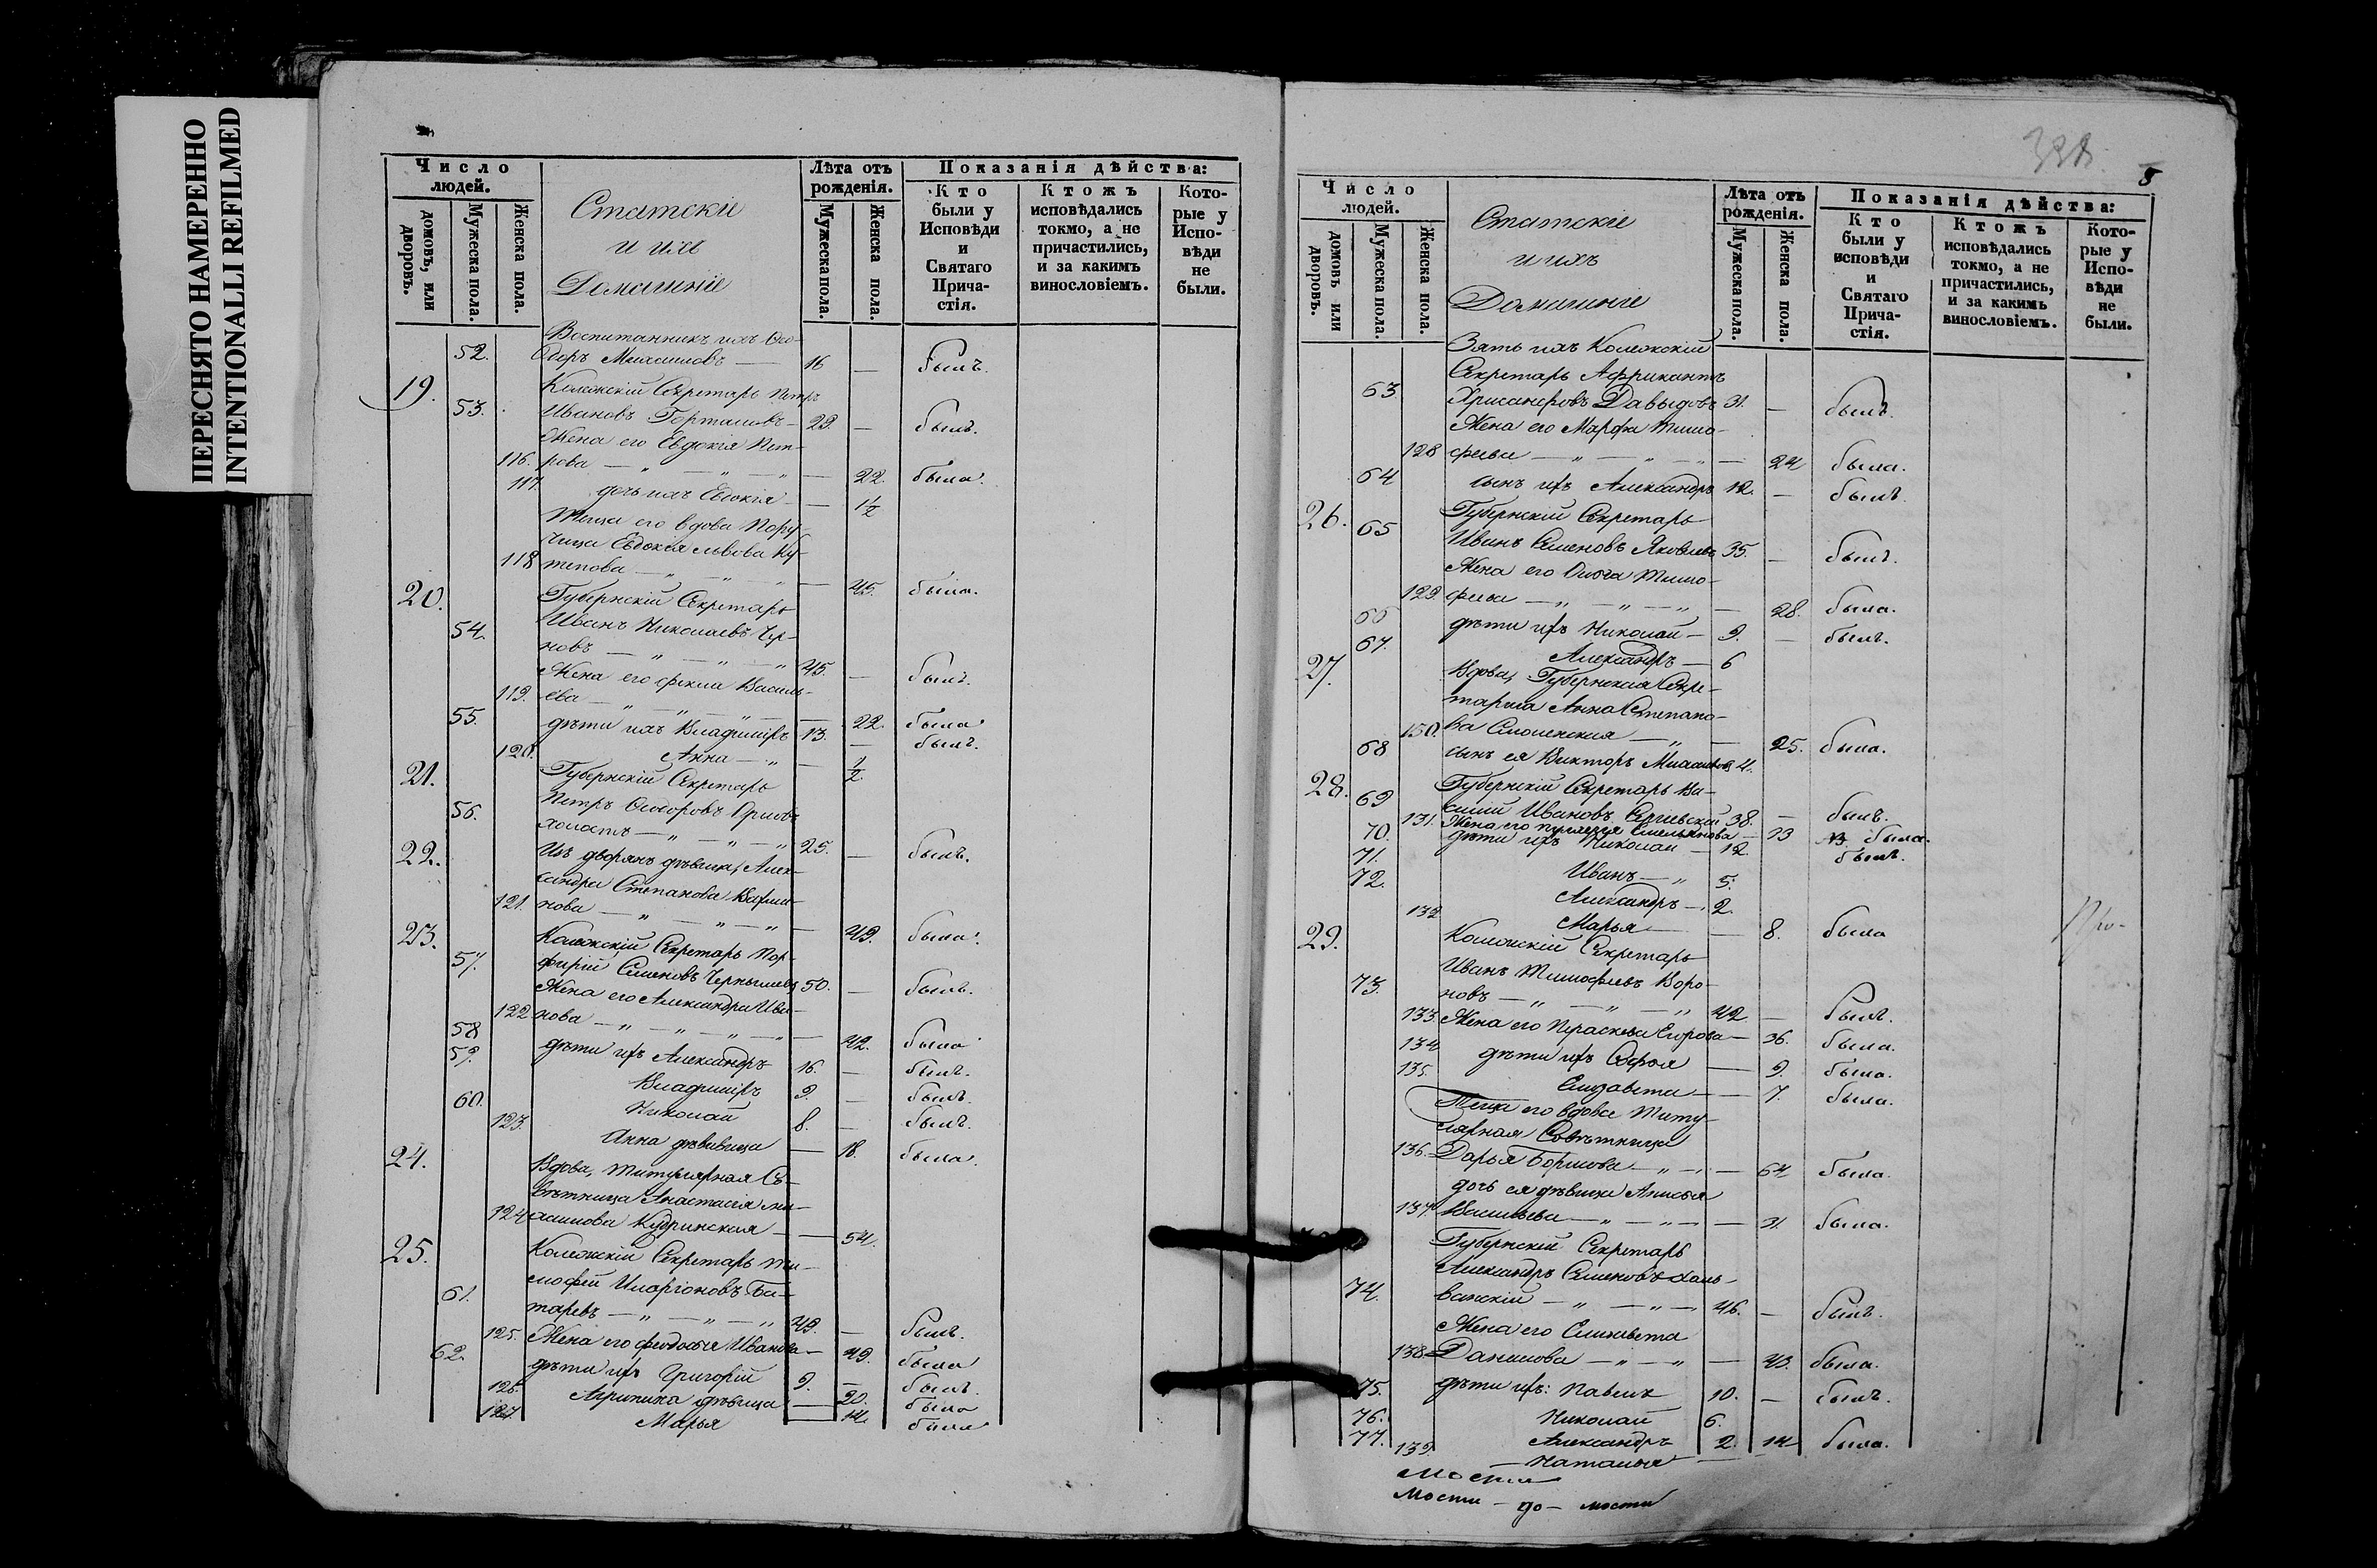 ПЕРЕСНЯТО НАМЕРЕННО
INTENTIONALLI REFILMED
Число людей.
домовъ, или дворовъ.
Мужеска пола.
Женска пола.
Статскіе
и ихъ
Домашніе
Лѣта отъ рожденія.
Мужеска пола.
Женска пола.
Показанія дѣйства:
Кто были у Исповѣди и Святаго Прича-стія.
Ктожъ исповѣдались токмо, а не причастились, и за какимъ винословіемъ.
Кото-рые у Испо-вѣди не были.
Воспитанникъ ихъ Ѳео-
52. доръ Михаиловъ — 16 — былъ.
19. Колежскій Секретарь Петръ
53. Ивановъ — 29. — былъ.
Жена его Евдокія Пет-
116. рова — „ — „ — 22. была.
117. дочь ихъ Евдокія — — 1½
Теща его вдова Пору-
чица Евдокія Львова Ку-
118 тепова — „ — „ — 45. была.
20. Губернскій Секретарь
54. Иванъ Николаевъ Чер-
новъ — „ — „ — „ 45. — былъ.
Жена его Василь-
119. ева — „ — „ — 22. была
55. дѣти ихъ Владиміръ 13. — былъ.
120. Анна — „ — ½.
21. Губернскій Секретарь
56. Петръ Ѳеодоровъ Орлов-
„ — „ — „ 25. — былъ.
22. Изъ дворянъ дѣвица, Алек-
сандра Степанова
121. нова — „ — „ — 49. была.
23. Колежскій Секретарь Пор-
57. фирій Семеновъ Чернышевъ 50. — былъ.
Жена его Александра Ива-
122 нова — „ — „ — „ — 42. была
58 дѣти ихъ Александръ 16. — былъ.
59. Владиміръ 9. — былъ.
60. Николай 8. — былъ.
123. Анна дѣвица — 18. была.
24. Вдова, Титулярная Со-
вѣтница Анастасія Ми-
124 хаилова Кудринская — — 54.
25. Колежскій Секретарь Ти-
61. мофей Иларіоновъ Ба-
таревъ — „ — „ — „ 49. — былъ.
125. Жена его Феодосія Иванова — 49. была
62. дѣти ихъ Григорій 9. — былъ.
126. Агрипина дѣвица — 20. была
127. Марья — 14. была
5
Число людей.
домовъ или дворовъ.
Мужеска пола.
Женска пола.
Статскіе
и ихъ
Домашніе
Лѣта отъ рожденія.
Мужеска пола.
Женска пола.
Показанія дѣйства:
Кто были у исповѣди и Святаго Прича-стія.
Ктожъ исповѣдались токмо, а не причастились, и за какимъ винословіемъ.
Кото-рые у Испо-вѣди не были.
Зять ихъ Колежскій
Секретарь Африкантъ
63. Хрисанфовъ Давыдовъ 31. — былъ.
Жена его Марфа Тимо-
128 феева — „ — „ — „ — 24 была.
64 сынъ ихъ Александръ 12. — былъ.
26. Губернскій Секретарь
65 Иванъ Семеновъ Яковлевъ 35. — былъ.
Жена его Ольга Тимо-
129. феева — „ — „ — „ — 28. была.
66 дѣти ихъ Николай — 9. — былъ.
67. Александръ — 6
27. Вдова, Губернская Секре-
тарша Анна Степано-
130. ва Смоленская — „ — 25. была.
68 сынъ ея Викторъ 4.
28. Губернскій Секретарь Ва-
69 силій Ивановъ 38. — былъ.
131. Жена его Емельянова — 23 была.
70. дѣти ихъ Николай — 12. былъ.
71. Иванъ — „ 5.
72. Александръ — 2.
132 Марья — — 8. была
Про-
29. Колежскій Секретарь
73. Иванъ Тимофеевъ Воро-
новъ — „ — „ — „ 42 — былъ.
133. Жена его Параскева Егорова — 36. была.
134 дѣти ихъ Софья — 9. была.
135. Елизавета — — 7. была.
Теща его вдова Титу-
лярная Совѣтница
136. Дарья — „ — — 64 была.
дочь ея дѣвица Анисья
137. Васильева — „ — „ — — 31 была.
Губернскій Секретарь
Александръ Семеновъ Халь-
74. ванскій — „ — „ — 46. — былъ.
Жена его Елизавета
138 Данилова — „ — „ — 43. была.
75. дѣти ихъ: Павелъ 10. — былъ.
76. Николай 6.
77. Александръ 2. 14 была.
139 Наталья
Мости — до — мости